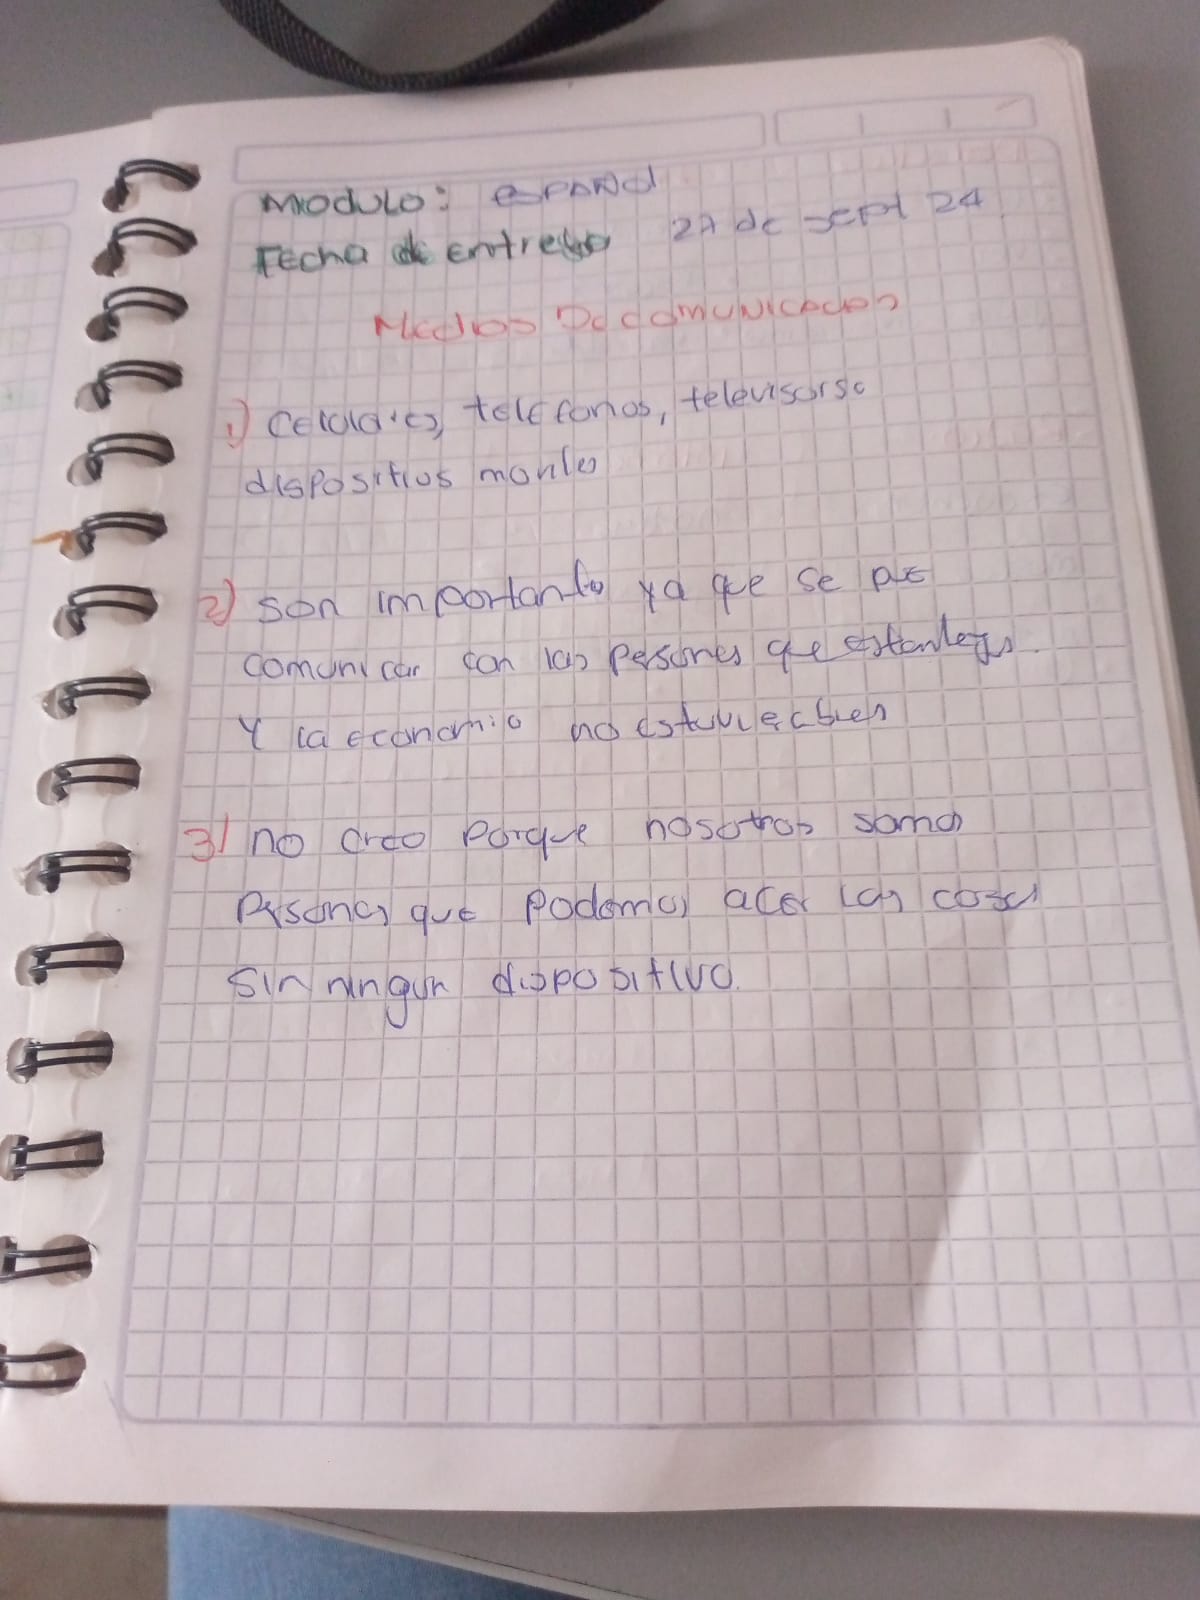 Modulo: ESPAÑOl
Fecha de entrega 27 de sept 24
Medios De comunicacion
1) celulares, telefonos, televisorse
dispositios moviles
2) son importante ya que se pue
comunicar con las personas que estan lejs.
Y la economia no estuvie bien
3) no creo porque nosotros somos
Personas que Podemos acer las cosas
sin ningun dispositivo.